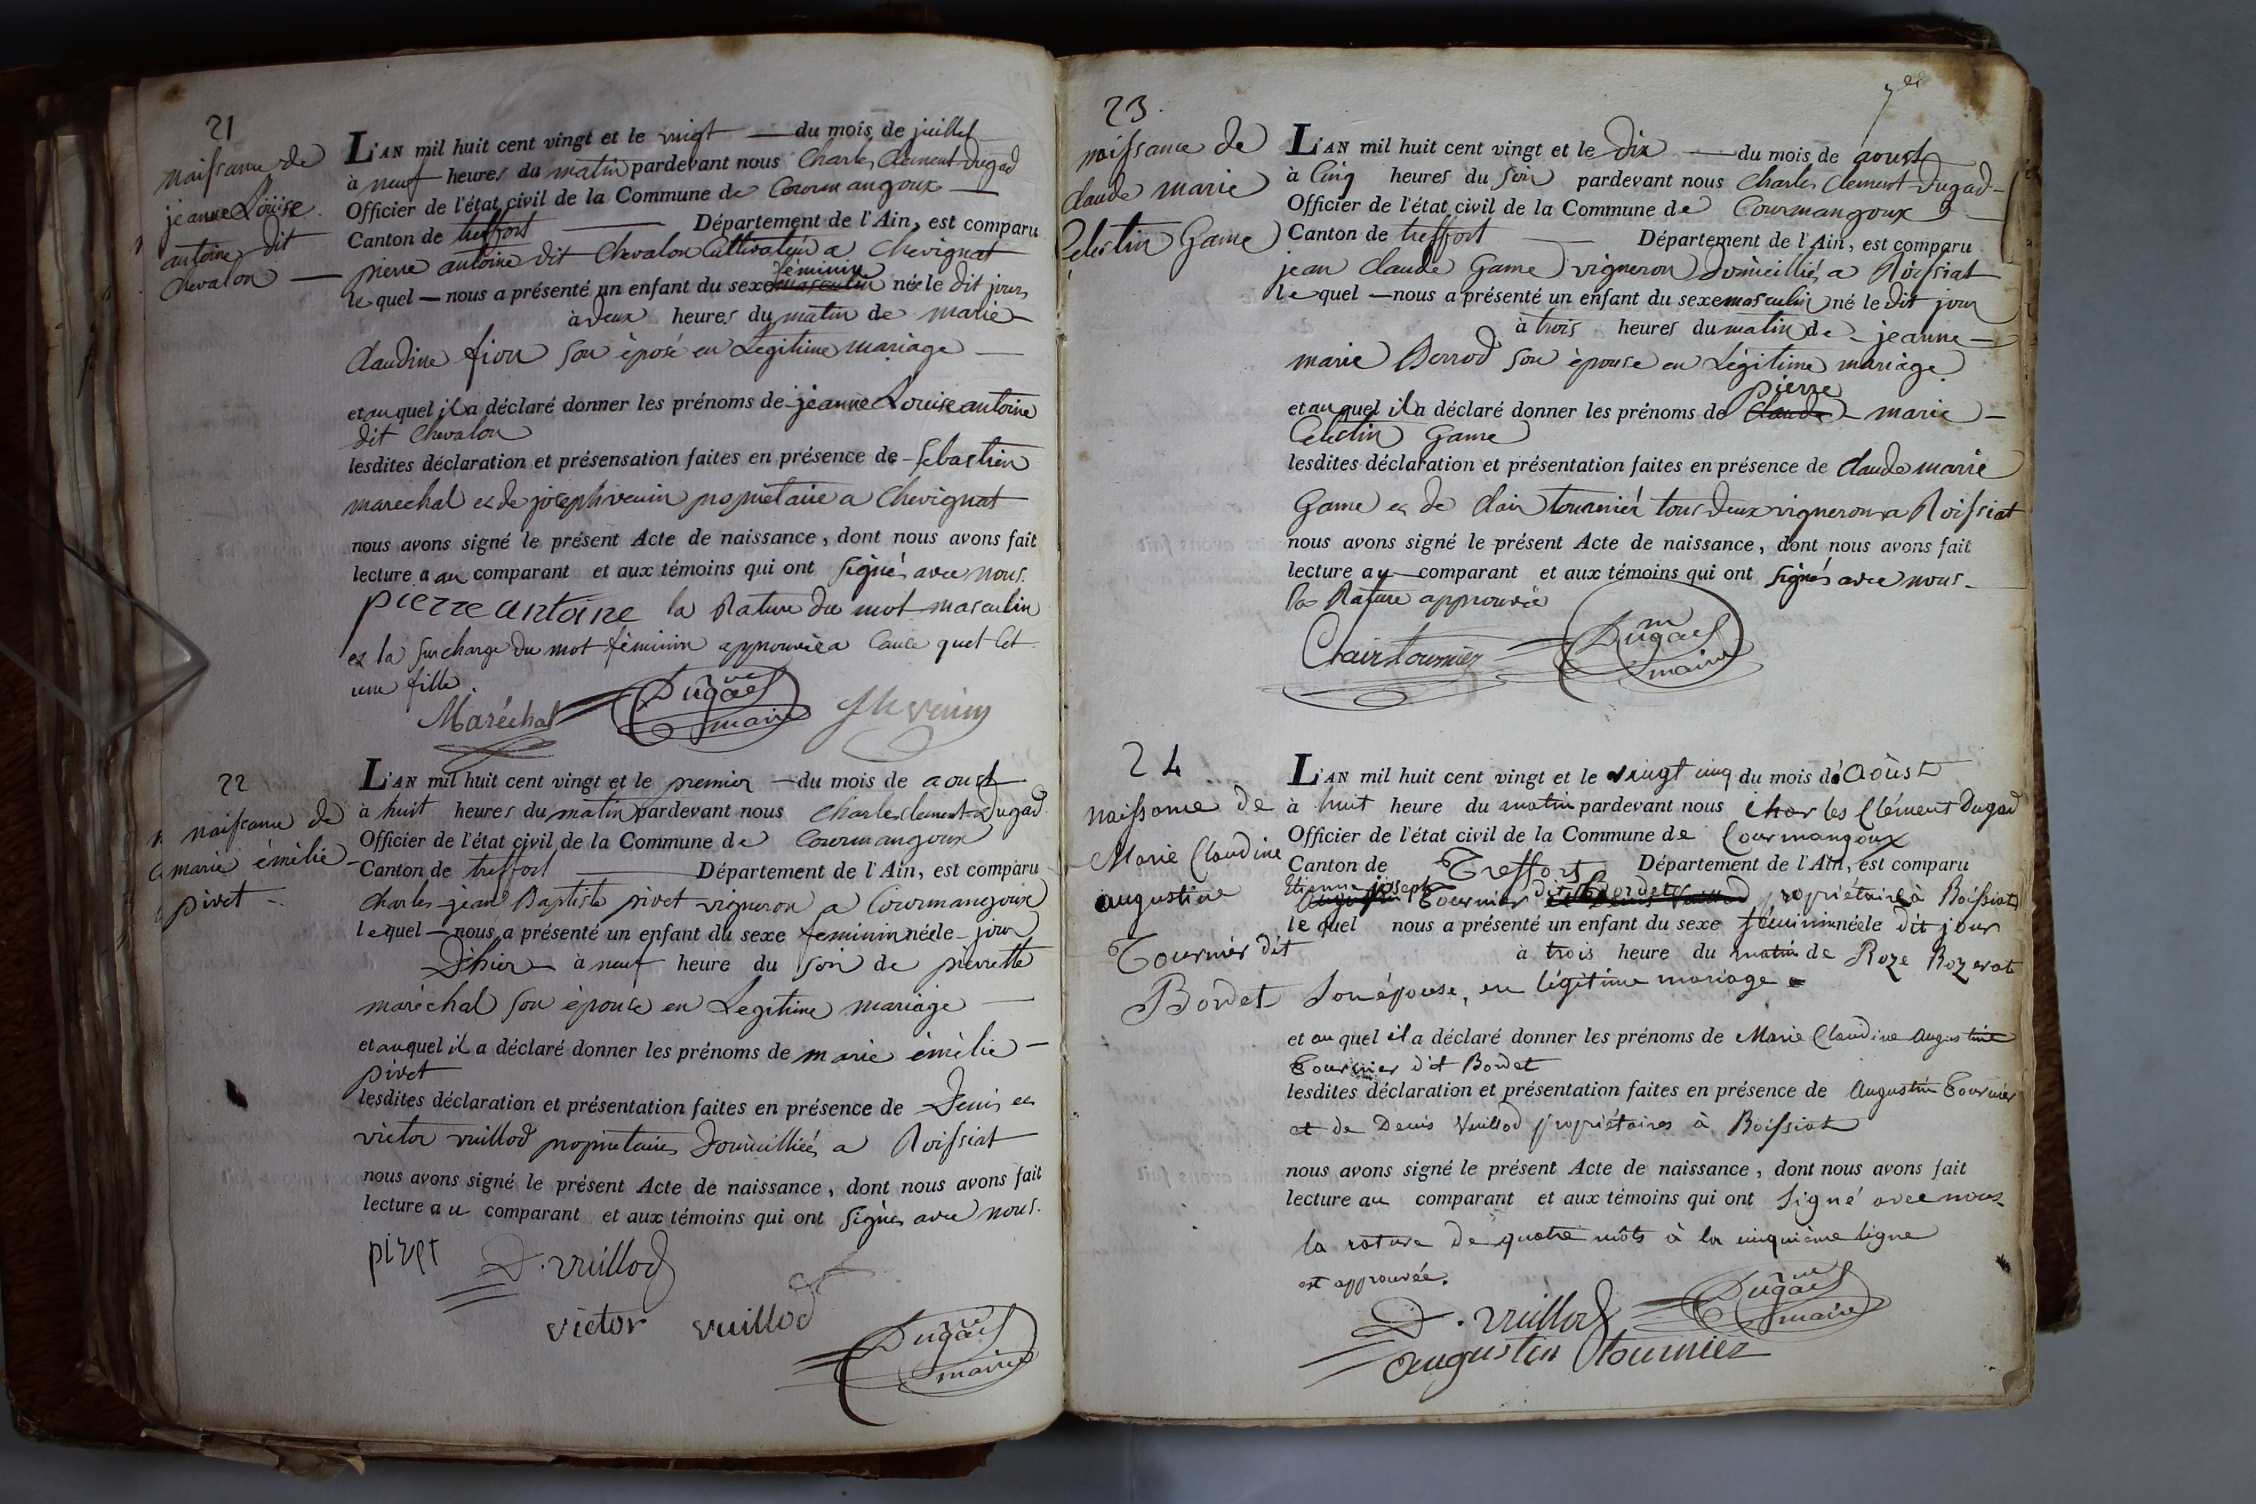 21
naissance de
jeanne Loüise
antoine dit
chevalon
L'AN mil huit cent vingt et le vingt du mois de juillet
à neuf heures du matin pardevant nous Charles Clement Dugad
Officier de l'état civil de la Commune de Courmangoux
Canton de treffort Département de l'Ain, est comparu
pierre antoine dit Chevalon Cultivateur a Chevignat
féminin
le quel nous a présenté un enfant du sexe masculin née le dit jour
à deux heures du matin de marie
Claudine fion son éposé en Légitime mariage
et au quel il a déclaré donner les prénoms de jeanne Louise antoine
dit Chevalon
lesdites déclaration et présensation faites en présence de Sebastien
marechal et de joseph venin propriétaire a Chevignat
nous avons signé le présent Acte de naissance, dont nous avons fait
lecture a au comparant et aux témoins qui ont signés avec nous.
pierre antoine la Rature du mot masculin
et la surcharge du mot féminin approuvée a Cause quel Cet
une fille
Maréchal Dugad maire Jh venin
22
naissance de
marie émélie
pivet
L'AN mil huit cent vingt et le premier du mois de aoust
à huit heures du matin pardevant nous Charles Clement Dugad
Officier de l'état civil de la Commune de Courmangoux
Canton de treffort Département de l'Ain, est comparu
Charles jean Baptiste pivet vigneron a Courmangoux
lequel nous a présenté un enfant du sexe feminin née le jour
D'hier à neuf heure du soir de pierrette
maréchal son épouse en Legitime mariage
et auquel il a déclaré donner les prénoms de marie émélie
pivet
lesdites déclaration et présentation faites en présence de Denis et
victor vuillod propriétaires Domicilliés a Roissiat
nous avons signé le présent Acte de naissance, dont nous avons fait
lecture a u comparant et aux témoins qui ont signés avec nous.
pivet D. vuillod
victor vuillod
Dugad
maire
23
naissance de
Claude marie
Celestin Game
L'AN mil huit cent vingt et le Dix du mois de aoust
à Cinq heures du soir pardevant nous Charles Clement Dugad
Officier de l'état civil de la Commune de Courmangoux
Canton de treffort Département de l'Ain, est comparu
jean Claude Game vigneron Domicilliés a Roissiat
le quel nous a présenté un enfant du sexe masculin né le dit jour
à trois heures du matin de jeanne
marie Berrod son épouse en Légitime mariage
pierre
et au quel il a déclaré donner les prénoms de Claude marie
Celestin Game
lesdites déclaration et présentation faites en présence de Claude marie
Game et de Clair tournier tous deux vigneron a Roissiat
nous avons signé le présent Acte de naissance, dont nous avons fait
lecture au comparant et aux témoins qui ont signés avec nous
La Rature approuvée
Clair tournier Dugad
maire
24
naissance de
Marie Claudine
augustine
Tournier dit
Bordet
L'AN mil huit cent vingt et le vingt cinq du mois d'Août
à huit heure du matin pardevant nous Charles Clément Dugad
Officier de l'état civil de la Commune de Courmangoux
Canton de Treffort Département de l'Ain, est comparu
Etienne joseph
Tournier dit Bordet propriétaire à Roissiat
le quel nous a présenté un enfant du sexe féminin née le dit jour
à trois heure du matin de Roze Rozerat
son épouse, en légitime mariage
et au quel il a déclaré donner les prénoms de Marie Claudine Augustine
Tournier dit Bordet
lesdites déclaration et présentation faites en présence de Augustin Tournier
et de Denis Vuillod propriétaires à Roissiat
nous avons signé le présent Acte de naissance, dont nous avons fait
lecture au comparant et aux témoins qui ont signé avec nous
la rature de quatre môts à la cinquième ligne
est approuvée.
D. vuillod Dugad
maire
augustin tournier